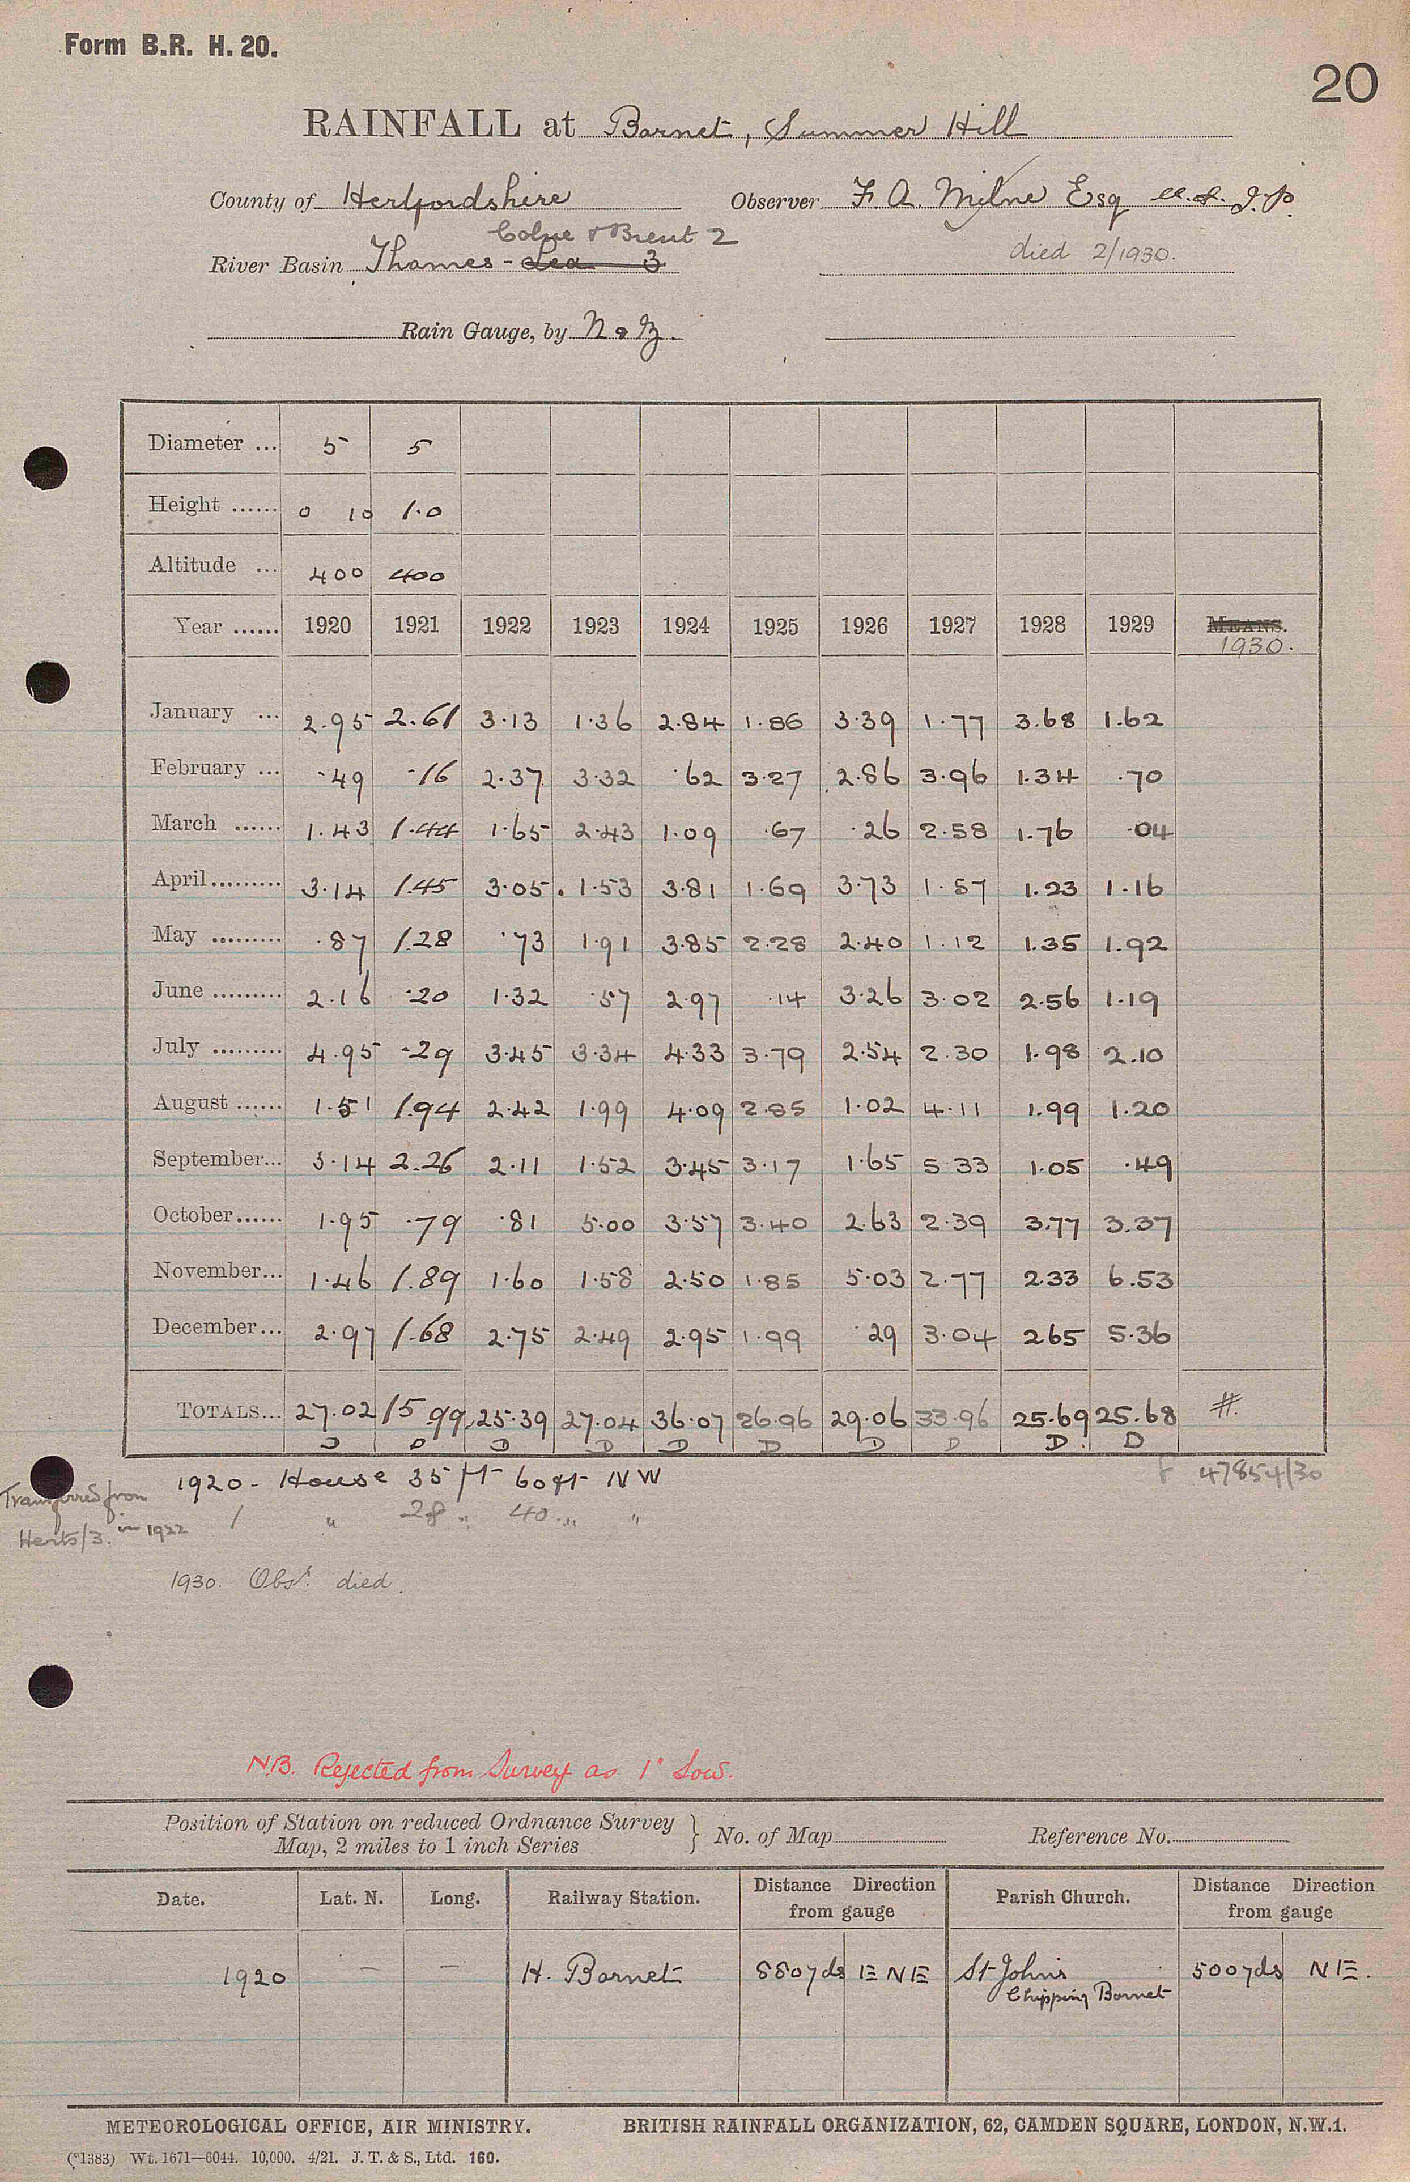 Form B.R. H. 20.
20
RAINFALL at Barnet, Summer Hill
County of Hertfordshire Observer F. A. Milne Esq M.A. J.P.
Colne & Brent 2
River Basin Thames - Lea 3 died 2/1930.
Rain Gauge, by N & Z.
Diameter ... 5 5
Height ...... 0 10 1.0
Altitude ... 400 400
Year ...... 1920 1921 1922 1923 1924 1925 1926 1927 1928 1929 MEANS.
1930.
January ... 2.95 2.61 3.13 1.36 2.84 1.86 3.39 1.77 3.68 1.62
February ... .49 .16 2.37 3.32 .62 3.27 2.86 3.96 1.34 .70
March ...... 1.43 1.44 1.65 2.43 1.09 .67 .26 2.58 1.76 .04
April ......... 3.14 1.45 3.05 1.53 3.81 1.69 3.73 1.57 1.23 1.16
May ......... .87 1.28 .73 1.91 3.85 2.28 2.40 1.12 1.35 1.92
June ......... 2.16 .20 1.32 .57 2.97 .14 3.26 3.02 2.56 1.19
July ......... 4.95 .29 3.45 3.34 4.33 3.79 2.54 2.30 1.98 2.10
August ...... 1.51 1.94 2.42 1.99 4.09 2.85 1.02 4.11 1.99 1.20
September... 3.14 2.26 2.11 1.52 3.45 3.17 1.65 5.33 1.05 .49
October...... 1.95 .79 .81 5.00 3.57 3.40 2.63 2.39 3.77 3.37
November... 1.46 1.89 1.60 1.58 2.50 1.85 5.03 2.77 2.33 6.53
December... 2.97 1.68 2.75 2.49 2.95 1.99 .29 3.04 2.65 5.36
TOTALS... 27.02 15.99 25.39 27.04 36.07 26.96 29.06 33.96 25.69 25.68 #
D D D D D D D D D. D
1920 - House 35 ft 60 ft NW 47854/30
Transferred from / " 28 " 40 " "
Herts/3. in 1922
1930. Obsr. died.
N.B. Rejected from Survey as 1" Low.
Position of Station on reduced Ordnance Survey
Map, 2 miles to 1 inch Series } No. of Map Reference No.
Date. Lat. N. Long. Railway Station. Distance Direction from gauge Parish Church. Distance Direction from gauge
1920 – – H. Barnet 880yds ENE St Johns 500yds NE.
Chipping Barnet
METEOROLOGICAL OFFICE, AIR MINISTRY. BRITISH RAINFALL ORGANIZATION, 62, CAMDEN SQUARE, LONDON, N.W.1.
(*1383) Wt. 1671—6044. 10,000. 4/21. J. T. & S., Ltd. 160.